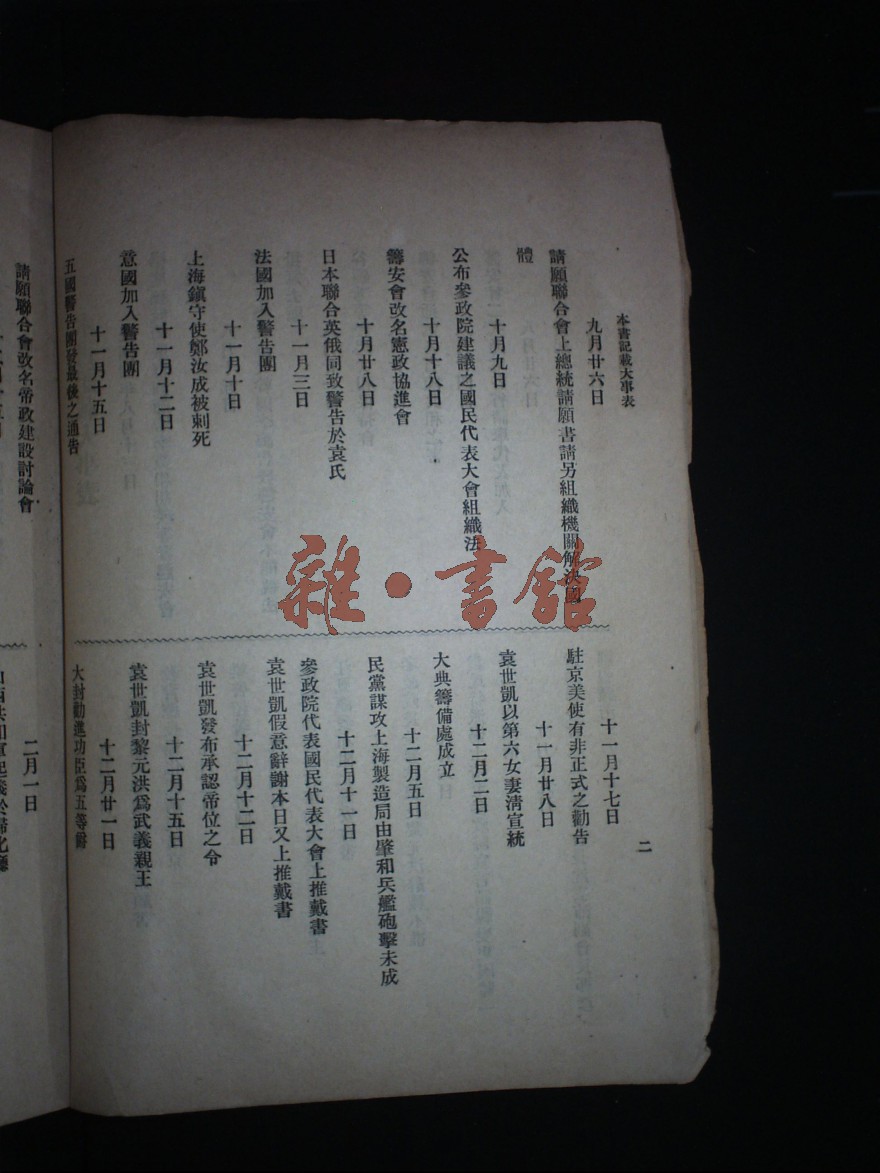 本書記載大事表
二
九月廿六日
請願聯合會上總統請願書請另組織機關解決國
體
十月九日
公布參政院建議之國民代表大會組織法
十月十八日
籌安會改名憲政協進會
十月廿八日
日本聯合英俄同致警告於袁氏
十一月三日
法國加入警告團
十一月十日
上海鎮守使鄭汝成被刺死
十一月十二日
意國加入警告團
十一月十五日
五國警告團發最後之通告
十一月十七日
駐京美使有非正式之勸告
十一月廿八日
袁世凱以第六女妻淸宣統
十二月二日
大典籌備處成立
十二月五日
民黨謀攻上海製造局由肇和兵艦砲擊未成
十二月十一日
參政院代表國民代表大會上推戴書
袁世凱假意辭謝本日又上推戴書
十二月十二日
袁世凱發布承認帝位之令
十二月十五日
袁世凱封黎元洪爲武義親王
十二月廿一日
大封勸進功臣爲五等爵
請願聯合會改名帝政建設討論會
二月一日
雜·書館